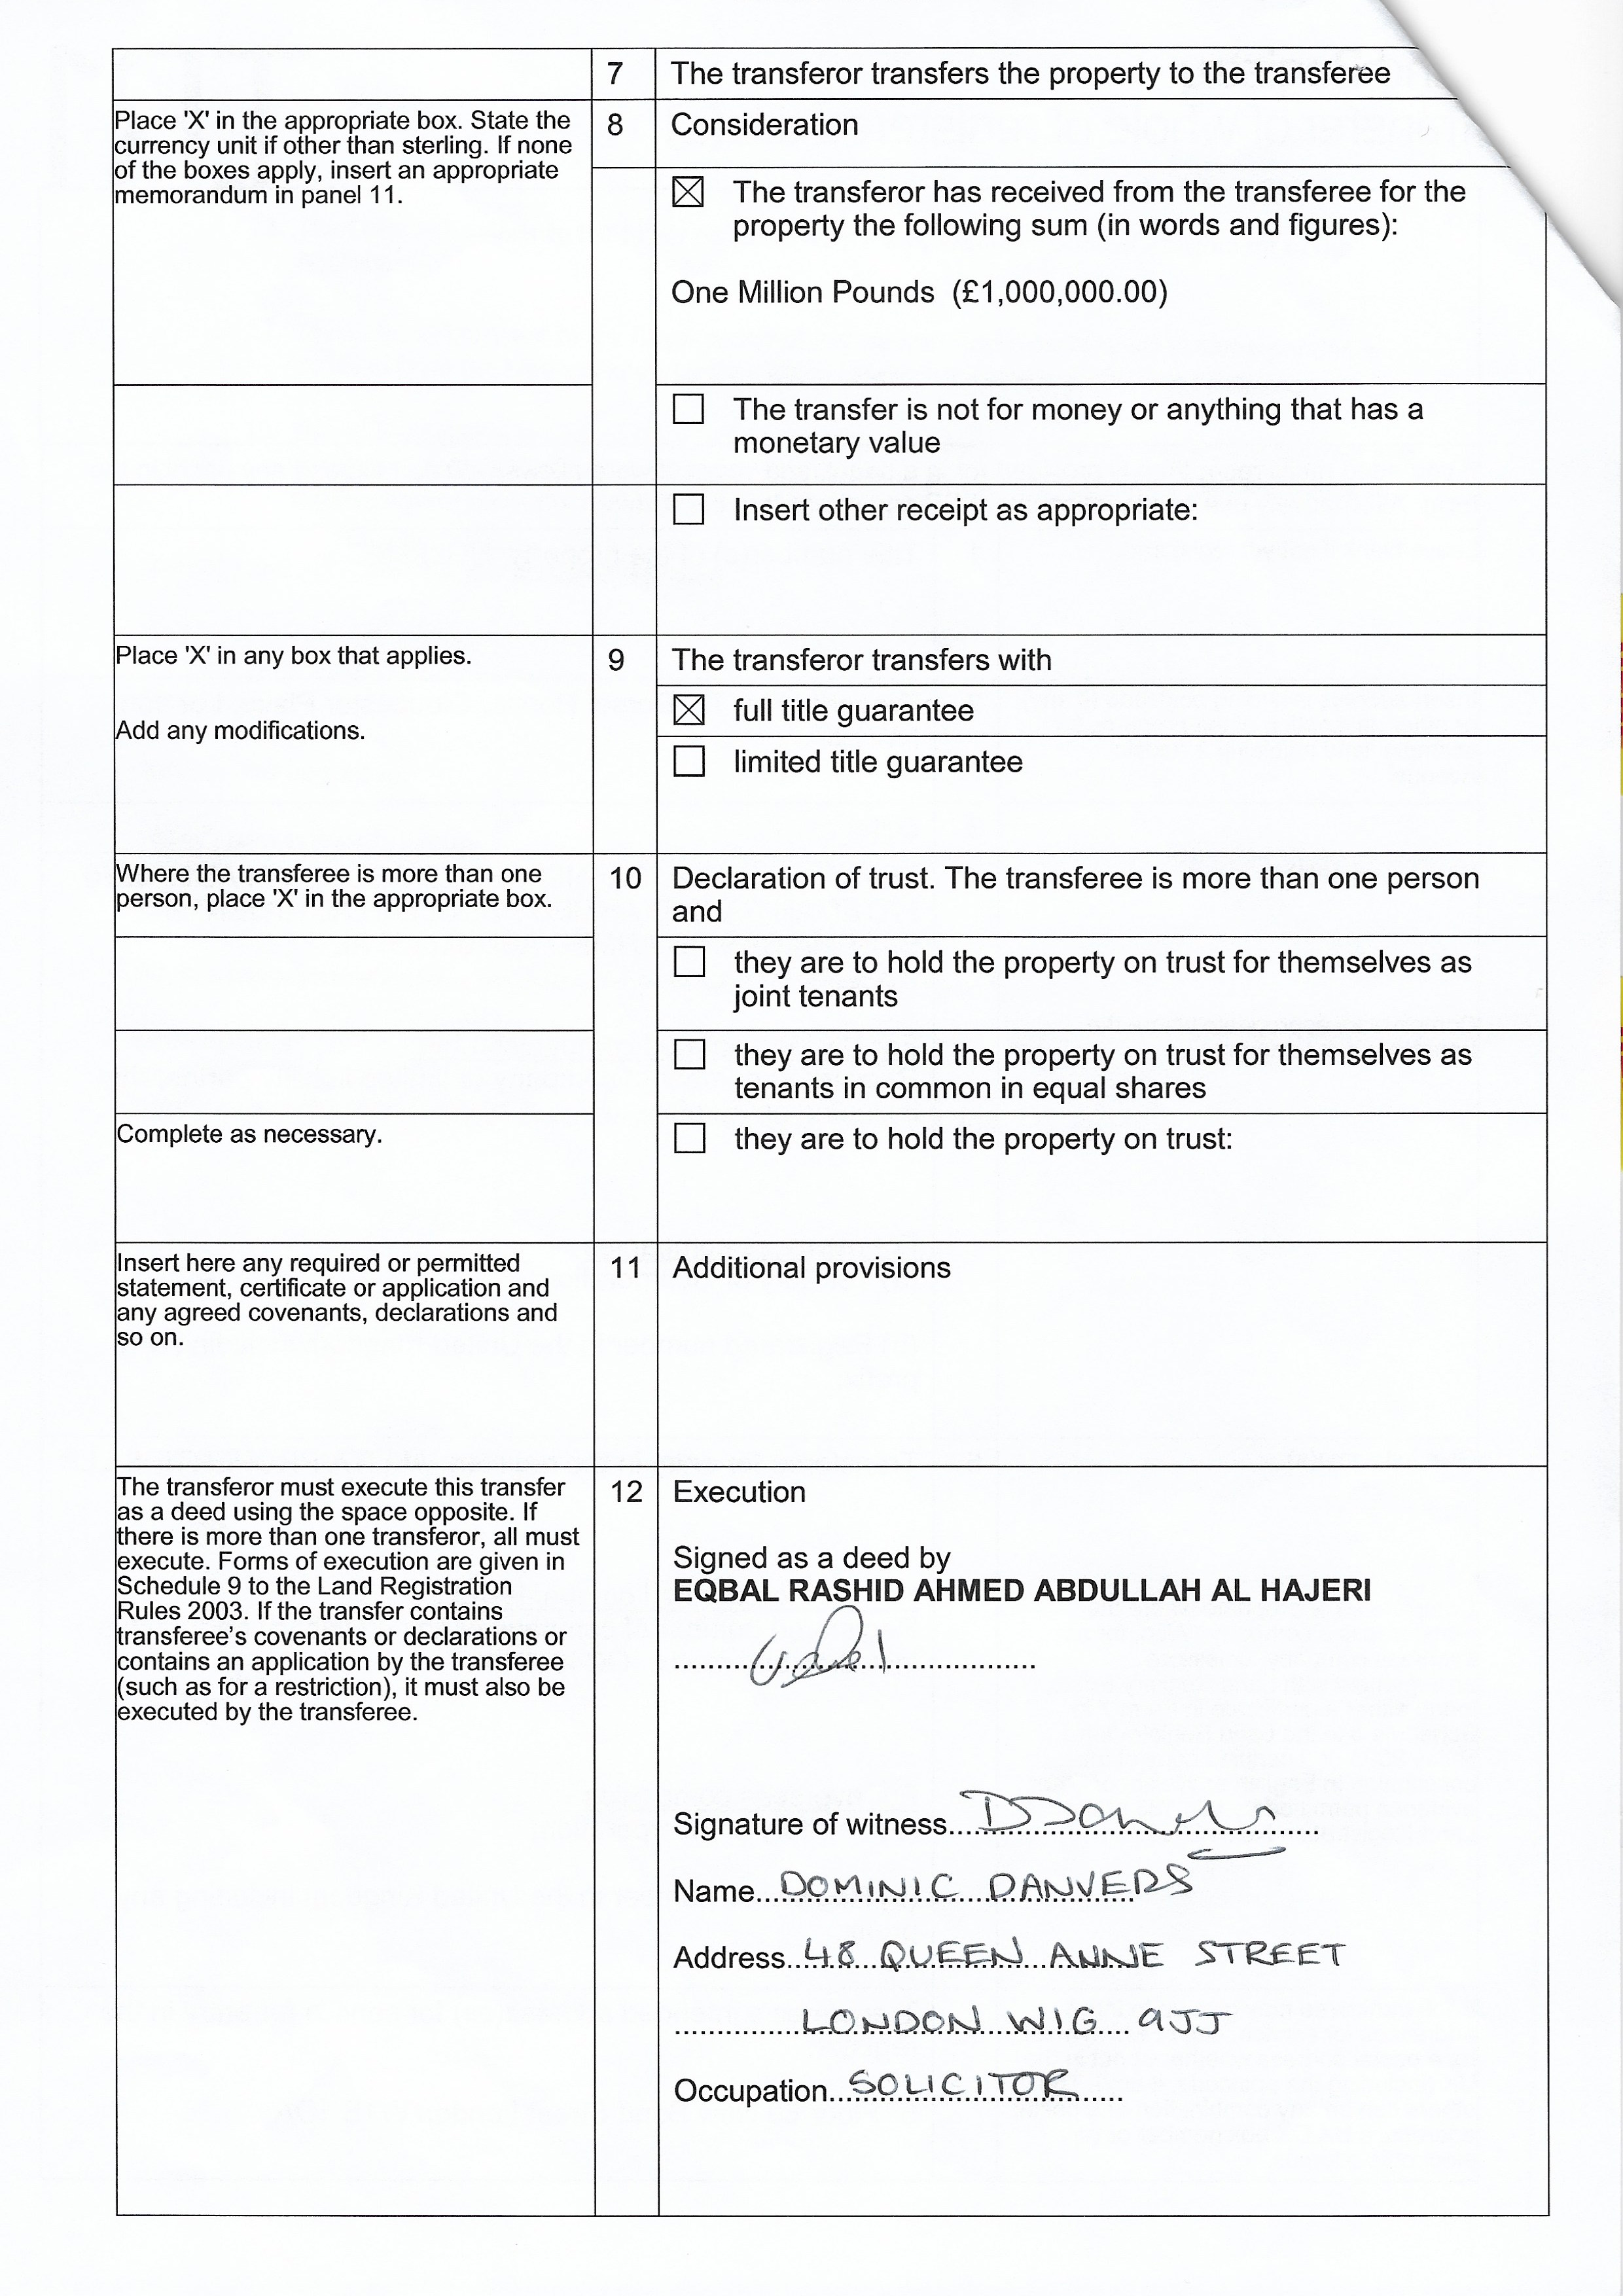 7 The transferor transfers the property to the transferee
Place 'X' in the appropriate box. State the
currency unit if other than sterling. If none
of the boxes apply, insert an appropriate
memorandum in panel 11.
8 Consideration
The transferor has received from the transferee for the
property the following sum (in words and figures):
One Million Pounds (£1,000,000.00)
The transfer is not for money or anything that has a
monetary value
Insert other receipt as appropriate:
Place 'X' in any box that applies.
Add any modifications.
9 The transferor transfers with
full title guarantee
limited title guarantee
Where the transferee is more than one
person, place 'X' in the appropriate box.
10 Declaration of trust. The transferee is more than one person
and
they are to hold the property on trust for themselves as
joint tenants
they are to hold the property on trust for themselves as
tenants in common in equal shares
Complete as necessary.
they are to hold the property on trust:
Insert here any required or permitted
statement, certificate or application and
any agreed covenants, declarations and
so on.
11 Additional provisions
The transferor must execute this transfer
as a deed using the space opposite. If
there is more than one transferor, all must
execute. Forms of execution are given in
Schedule 9 to the Land Registration
Rules 2003. If the transfer contains
transferee's covenants or declarations or
contains an application by the transferee
(such as for a restriction), it must also be
executed by the transferee.
12 Execution
Signed as a deed by
EQBAL RASHID AHMED ABDULLAH AL HAJERI
Signature of witness
Name DOMINIC DANVERS
Address 48 QUEEN ANNE STREET
LONDON W1G 9JJ
Occupation SOLICITOR